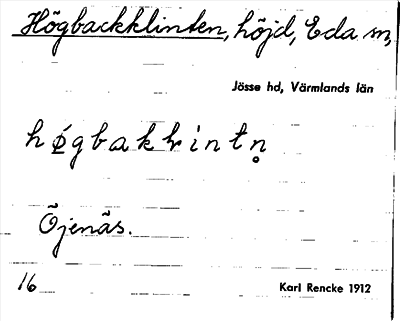 Högbackklinten, höjd, Eda sn,
Jösse hd, Värmlands län
Öjenäs.
16
Karl Rencke 1912